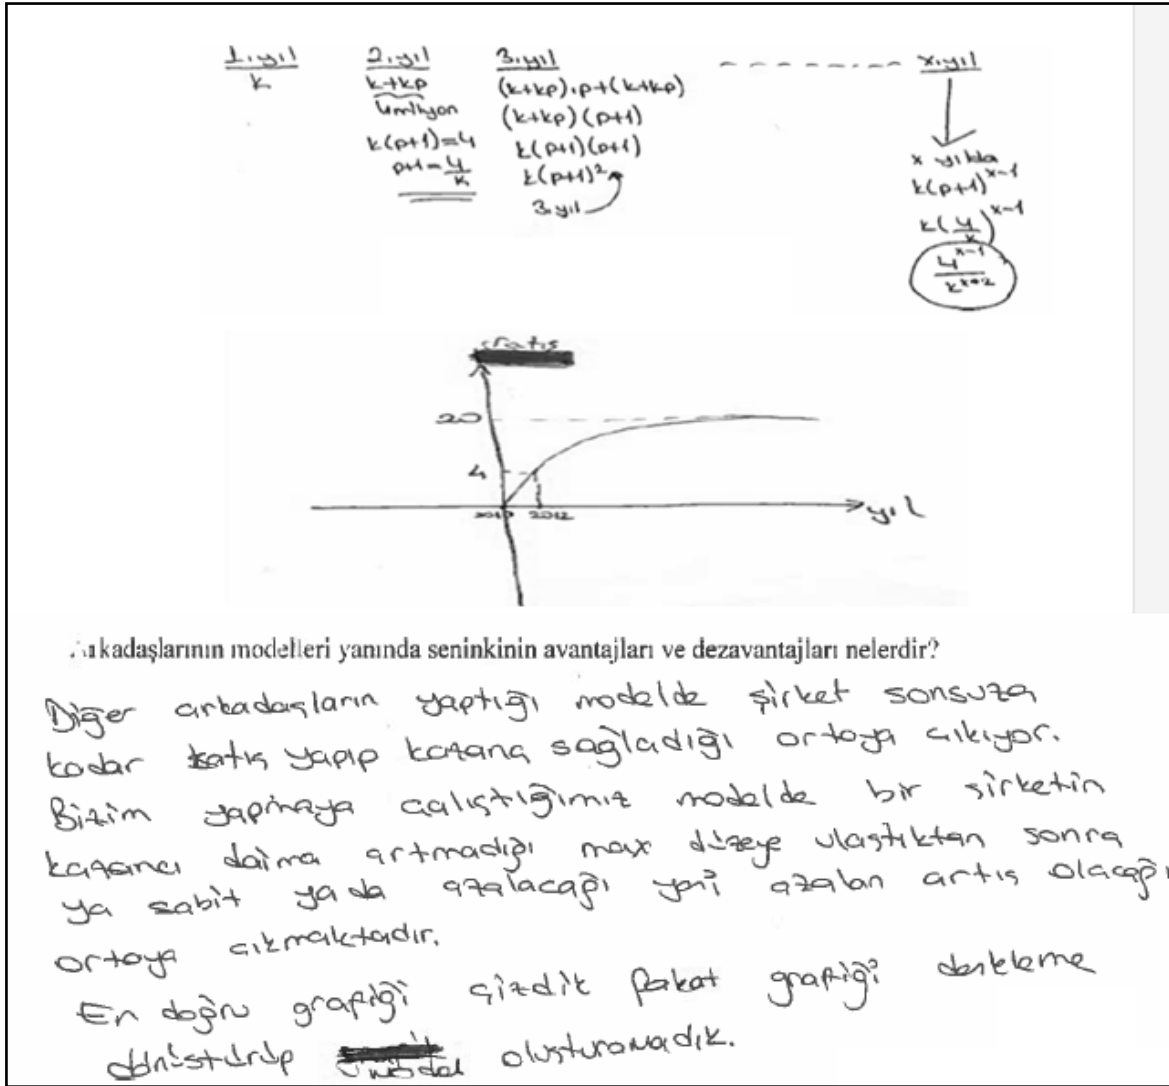 1.yıl 2.yıl 3.yıl x.yıl
k k+kp (k+kp).p+(k+kp)
4milyon (k+kp)(p+1)
k(p+1)=4 k(p+1)(p+1)
p+1=4/k k(p+1)²
3.yıl
x yılda
k(p+1)^x-1
k(4/k)^x-1
4^x-1/k^x-2
satış
20
4
2010 2012
yıl
kadaşlarının modelleri yanında seninkinin avantajları ve dezavantajları nelerdir?
Diğer arkadaşların yaptığı modelde şirket sonsuza
kadar satış yapıp kazanç sağladığı ortaya çıkıyor.
Bizim yapmaya çalıştığımız modelde bir şirketin
kazancı daima artmadığı max düzeye ulaştıktan sonra
ya sabit yada azalacağı yani azalan artış olacağı
ortaya çıkmaktadır.
En doğru grafiği çizdik fakat grafiği denkleme
dönüştürüp model oluşturamadık.